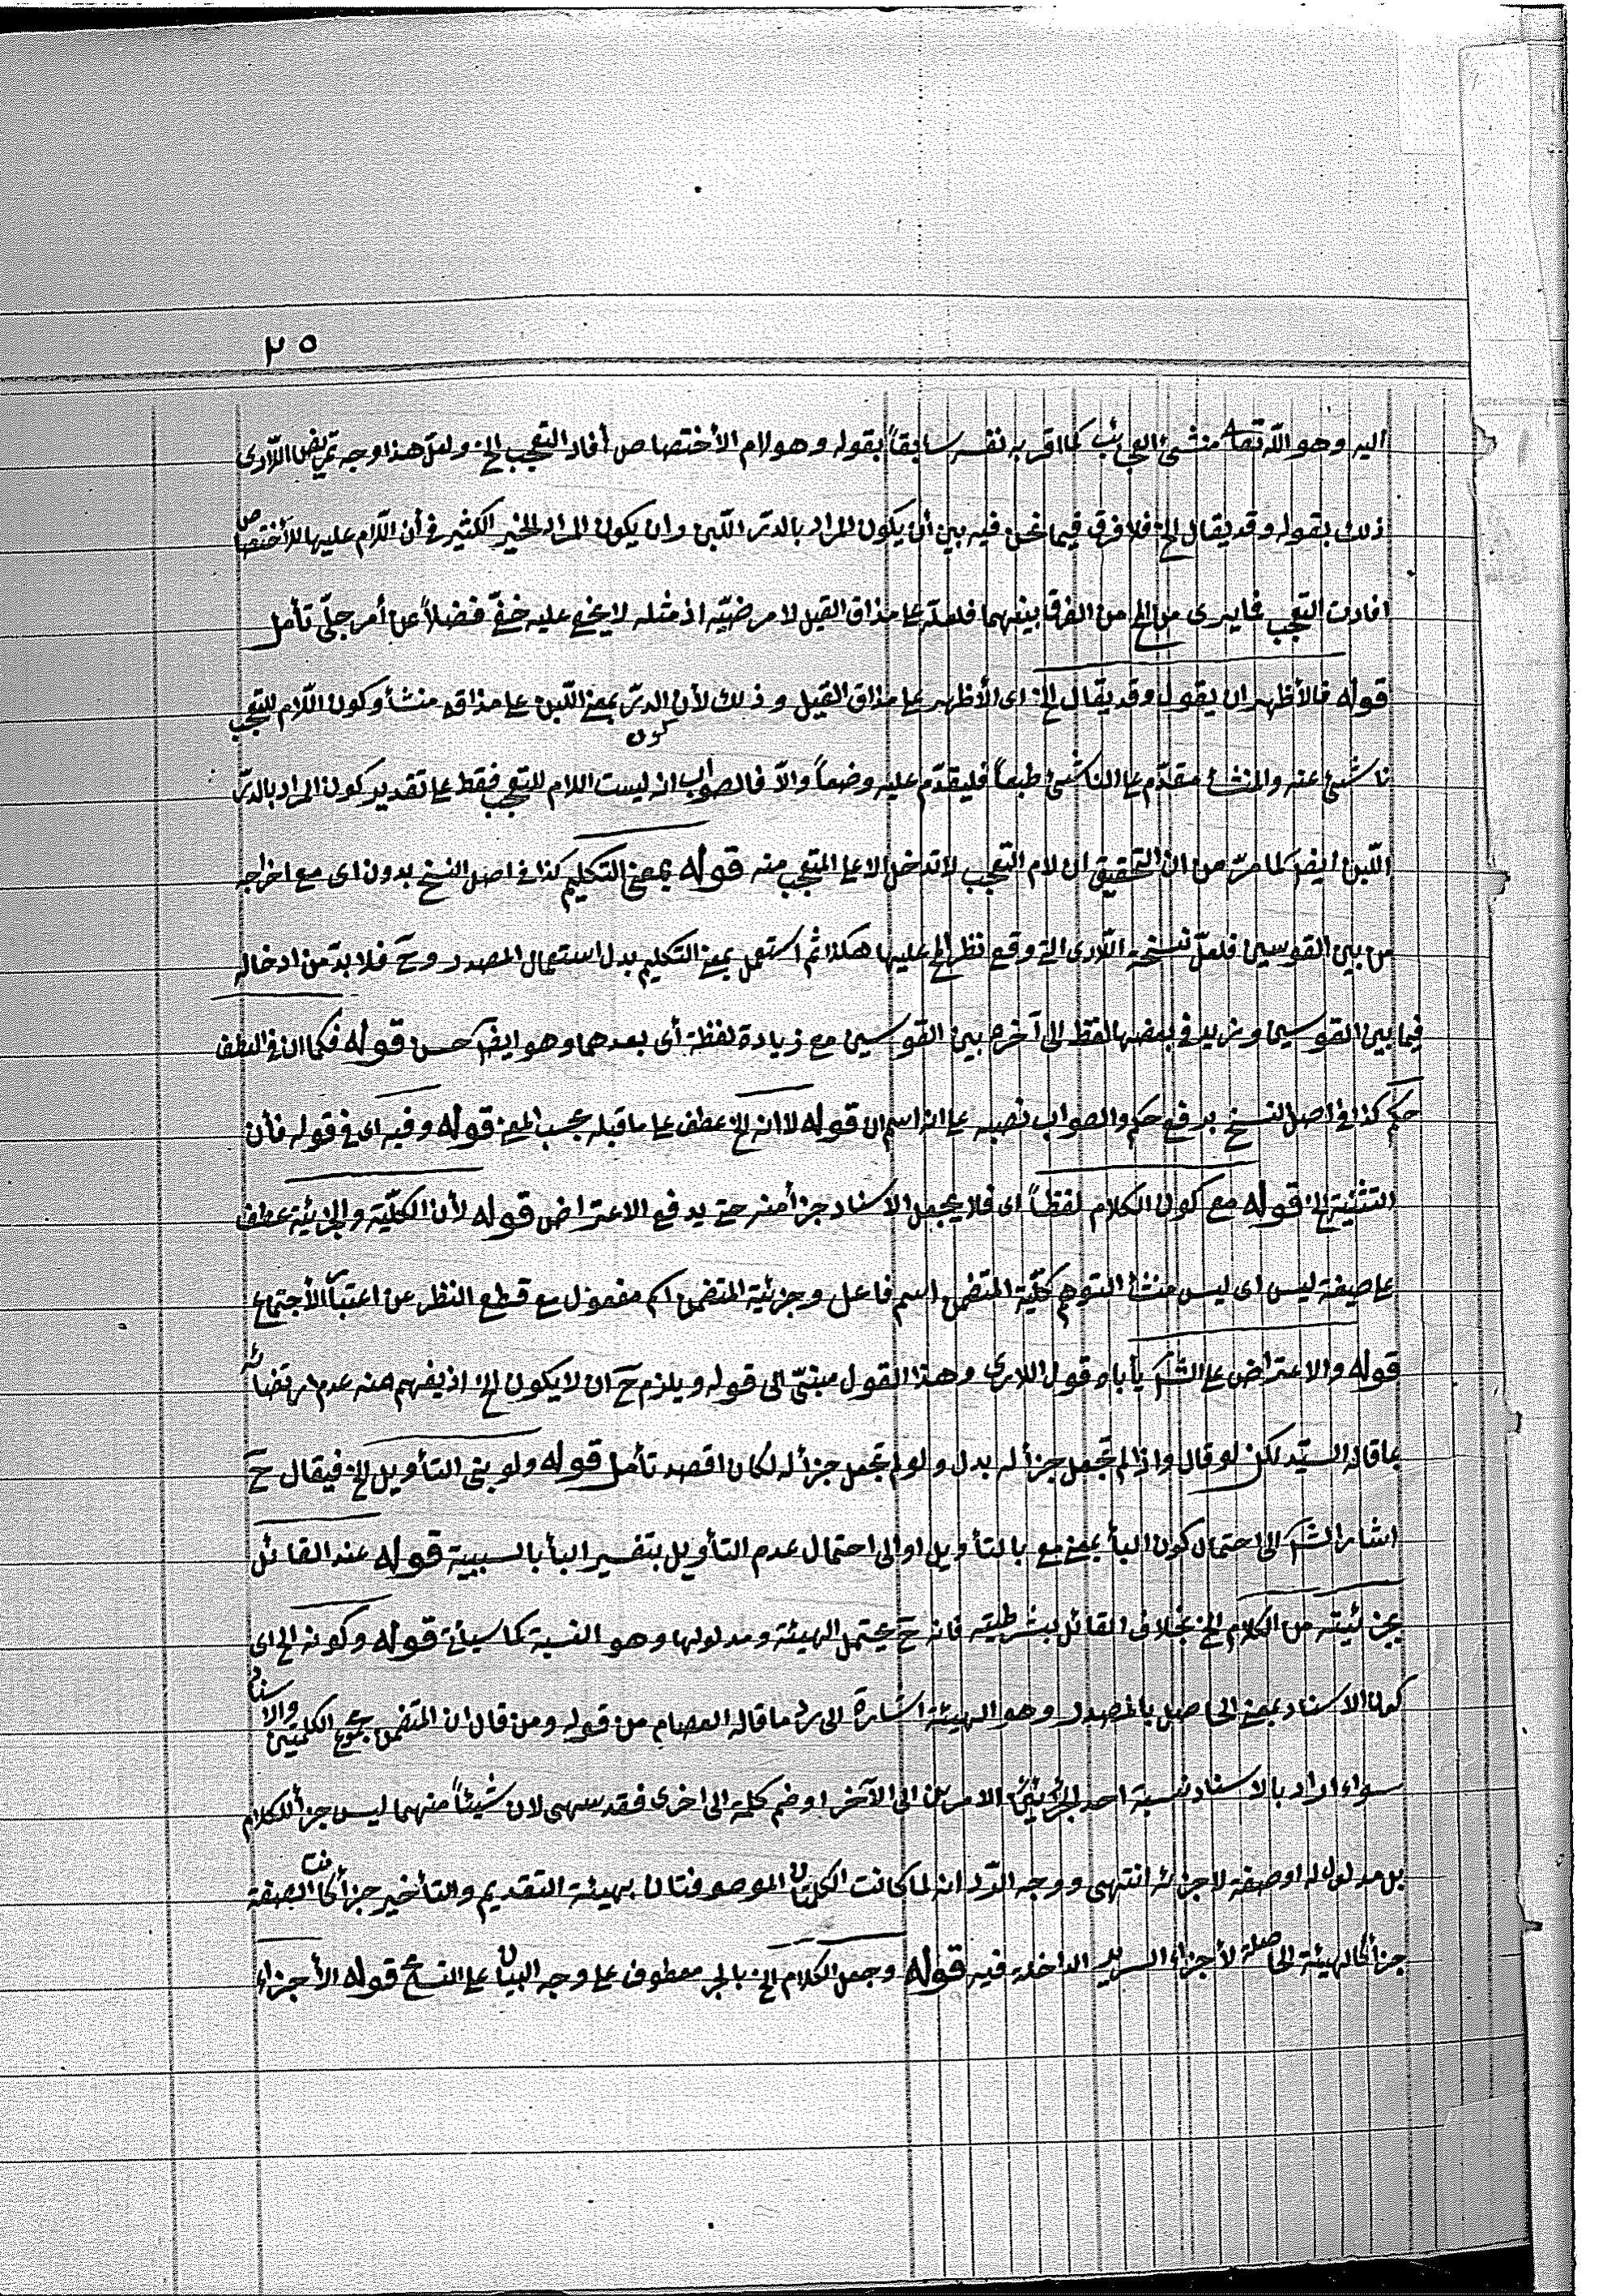 ٢٥
اليه وهو الله تعا منشئ العجائب كما اقر به نفسه سابقاً بقوله وهو لام الأختصاص أفاد التعجب الخ ولعل هذا وجه تمريض اللارى
ذلك بقوله وقد يقال الخ فلا فرق فيما نحن فيه بين أن يكون المراد بالدر اللبن وان يكون المراد الخير الكثير فى أن اللام عليها للأختصاص
افادت التعجب فما يرى من الفرق بينهما فلعله على مذاق القيل لا مرضيّه اذ مثله لا يخفى عليه خفىّ فضلاً عن أمر جلىّ تأمل
قوله فالأظهر ان يقول وقد يقال الخ اى الأظهر على مذاق القيل وذلك لأن كون الدرّ بمعنى اللبن على مذاقه منشأ وكون اللام للتعجب
ناشئ عنه والمنشأ مقدّم على الناشئ طبعاً فليقدّم عليه وضعاً والا فالصواب انه ليست اللام للتعجب فقط على تقدير كون المراد بالدرّ
اللبن ايضا كما مرّ من ان التحقيق ان لام التعجب لا تدخل الا على المتعجب منه قوله بمعنى التكليم كذا فى اصل النسخ بدون اى مع اخراجه
من بين القوسين فلعلّ نسخة اللارى التى وقع نظر عليها هكذا ثم استعمل بمعنى التكليم بدل استعمال المصدر وح فلا بدّ من ادخاله
فيما بين القوسين وزيد فى بعضها لفظ الى آخره بين القوسين مع زيادة لفظة أى بعدهما وهو ايضا حسن قوله فكما ان فى العطف
حكم كذا فى اصل النسخ برفع حكم والصواب نصبه على انه اسم ان قوله لا انه الخ عطف على ما قبله بحسب المعنى قوله وفيه اى فى قوله فأن
التثنية الخ قوله مع كون الكلام لفظاً اى فلا يجعل الاسناد جزأ منه حتى يدفع الاعتراض قوله لأن الكلّية والجزئية عطف
على صيغة ليس اى ليس منشأ التوهم كلّية المتضمن اسم فاعل وجزئية المتضمن اسم مفعول مع قطع النظر عن اعتبار الأجتماع
قوله والاعتراض على الش يأباه قول اللارى وهذا القول مبنىّ الى قوله ويلزم ح ان لا يكون الخ اذ يفهم منه عدم ارتضائه
بما قاله السيّد لكن لو قال واذا لم تجعل جزأ له بدل ولو لم تجعل جزأ له لكان اقصد تأمل قوله ولو بنى التأويل الخ فيقال ح
اشار الش الى احتمال كون البأ بمعنى مع بالتأويل او الى احتمال عدم التأويل بتفسير البأ بالسببية قوله عند القائل
بجزئيته من الكلام الخ بخلاف القائل بشرطيته فانه ح يحتمل الهيئة ومدلولها وهو النسبة كما سيأتى قوله وكونه الخ اى
كون الاسناد بمعنى الحاصل بالمصدر وهو الهيئة اشارة الى رد ما قاله العصام من قوله ومن قال ان المتضمن مجموع الكلمتين والاسناد
سواء اراد بالاسناد نسبة احد الامرين الى الآخر او ضم كلمة الى اخرى فقد سهى لان شيئاً منهما ليس جزأ للكلام
بل مدلول له او صفة لاجزائه انتهى ووجه الرّد انه لما كانت الكلمتان الموصوفتان بهيئة التقديم والتأخير جزأ كانت الصفة
جزأ كالهيئة الحاصلة لأجزاء السرير الداخلة فيه قوله وجعل الكلام الخ بالجر معطوف على وجه البيان على النسخ قوله الأجزاء